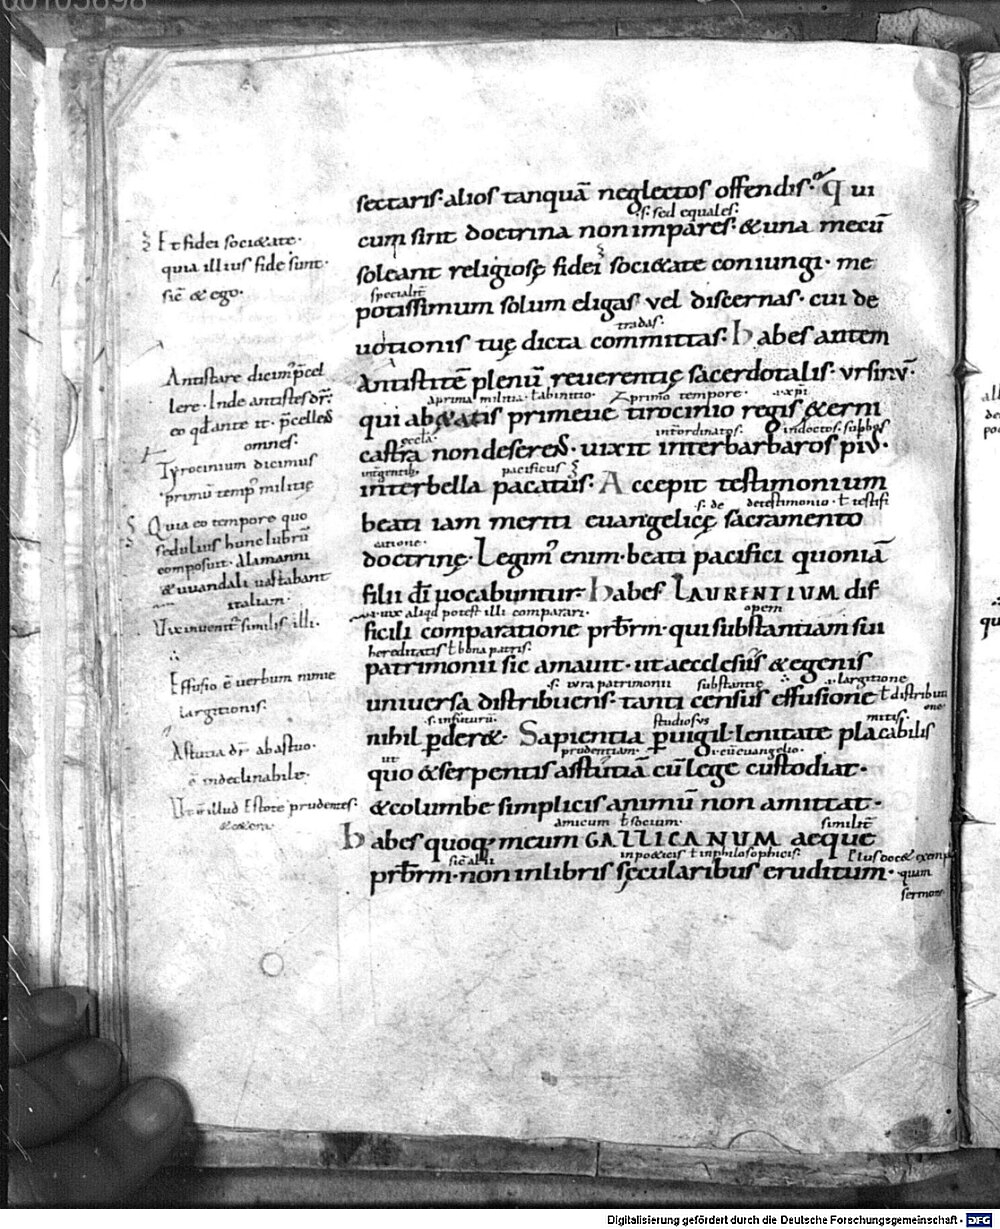 00105898
sectaris· alios tanquā neglectos offendis· Qui
·s· sed equales·
cum sint doctrina non impares· & una mecū
soleant religiosę fidei soci&ate coniungi· me
specialit̄
potissimum solum eligas vel discernas· cui de
tradas·
uotionis tuę dicta committas· Habes antem
Antistitē plenū reuerentię sacerdotalis· vrsinv̄·
a prima militia· ł ab initio· primo tempore· xp̄i
qui ab &atis primeue tirocinio regis &erni
eccłā· int̄ordinatos· indoctos· suꝑbos
castra non deserens· uixit inter barbaros pivs·
int̄ gentib; pacificus
inter bella pacatus· Accepit testimonium
·s· de de testimonio· ł testifi
beati iam meriti euangelicę sacramento
catione·
doctrinę· Legim᾽ enim· beati pacifici quoniā
filii dī uocabuntur· Habes LAURENTIUM dif
·a· uix aliqd potest illi comparari· opem
ficili comparatione prb̄rm· qui substantiam sui
hereditatis ł bona patris·
patrimonii sic amauit· ut aecclesiis & egenis
·s· vra patrimonii substantię largitione
universa distribuens· tanti census effusione ł distributi
one·
·s· infuturū studiosvs mitis·
nihil ꝑder&· Sapientia ꝑuigil· lenitate placabilis
ut prudentiam· cū euangelio·
quo & serpentis astutiā cū lege custodiat·
& columbe simplicis animū non amittat·
amicum ł socium· similit̄
Habes quoq; meum GALLICANUM aeque
sic̄ alii in po&icis ł in philosophicis· Eius doc& exempl
prb̄rm· non in libris sęcularibus eruditum· quam
sermone
Et fidei soci&ate·
quia illius fide sunt·
sic̄ & ego·
Antistare dicim᾽ p̄cel
lere· Inde antistes dr̄·
eo qđ ante it· p̄cellens
omnes·
Tyrocinium dicimus
primū temp᾽ militię
Quia eo tempore quo
sedulius hunc librū
composuit· Alamanni
& uuandali uastabant
italiam·
Vix inuenit᾽ similis illi·
Effusio ē uerbum nimie
largitionis·
Astutia dr̄ ab astuo·
ē indeclinabile·
Ut ē illud Estote prudentes·
Digitalisierung gefördert durch die Deutsche Forschungsgemeinschaft - DFG